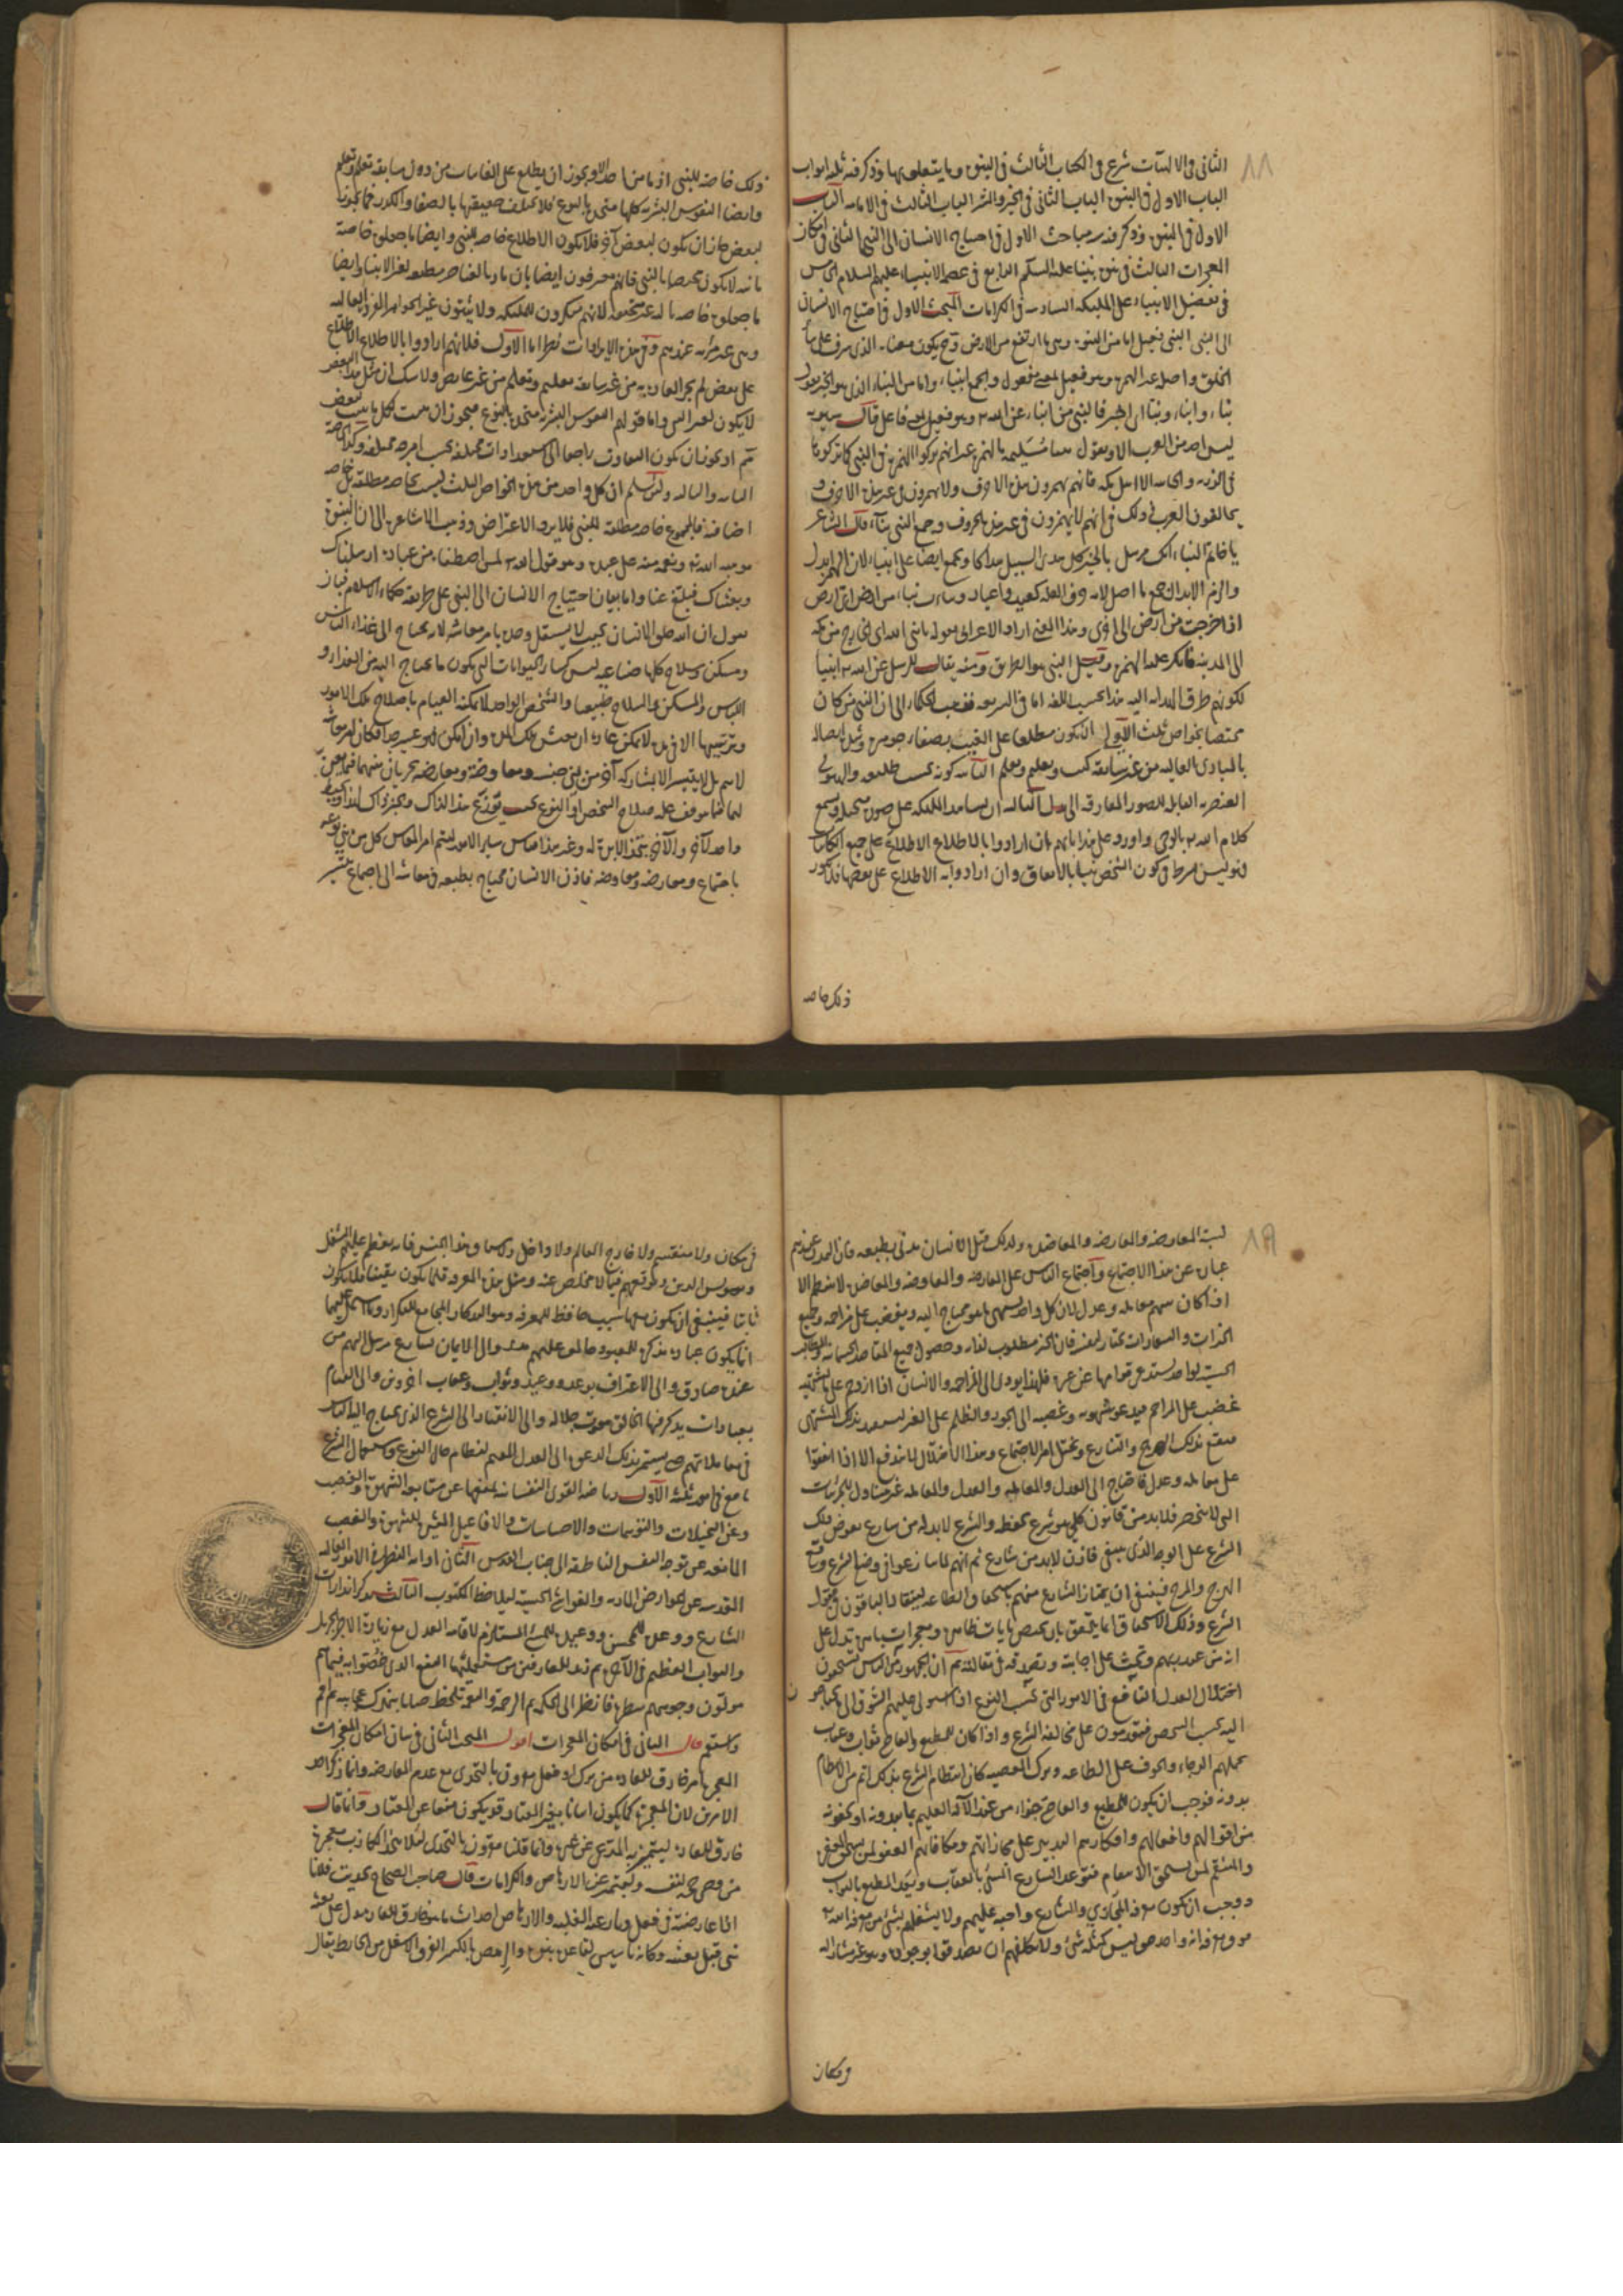 ١٨
الثانى فى الالهيات شرع فى الكتاب الثالث فى النبوة وما يتعلق بها وذكر فيه ثلثة ابواب
الباب الاول فى النبوة الباب الثانى فى الحشر والنشر الباب الثالث فى الامامة الباب
الاول فى النبوة وذكر فيه مباحث الاول فى احتياج الانسان الى النبى الثانى فى امكان
المعجزات الثالث فى نبوة نبينا عليه السلام الرابع فى عصمة الانبياء عليهم السلام الخامس
فى تفضيل الانبياء على الملئكة السادس فى الكرامات المبحث الاول فى احتياج الانسان
الى النبى النبى فعيل اما من النبوة وهى ما ارتفع من الارض وح يكون معناه الذى شرف على سائر
الخلق واصله غير الهمزة وهو فعيل بمعنى مفعول والجمع انبياء واما من النباء الذى هو الخبر يقول
نباء وانباء ونبأ اى اخبر فالنبى من انباء عن الله وهو فعيل بمعنى فاعل قال سيبويه
ليس احد من العرب الا ويقول تنبأ مسيلمة بالهمزة غير انهم تركوا الهمزة فى النبى كما تركوها
فى الذرية والخابية الا اهل مكة فانهم يهمزون هذه الاحرف ولا يهمزون فى غير هذه الاحرف و
يخالفون العرب فى ذلك فى انهم لا يهمزون فى غير هذه الحروف وجمع النبى نبآء قال الشاعر
يا خاتم النباء انك مرسل بالخير كل هدى السبيل هداكا ويجمع ايضا على انبياء لان الهمز ابدل
والزم الابدال جمع ما اصل لامه حرف العلة كعيد واعياد ونبأت نباء من ارض الى ارض
اذا خرجت من ارض الى اخرى وهذا المعنى اراد الاعرابى بقوله يا نبئ الله اى الخارج من مكة
الى المدينة فانكر عليه الهمزة وقيل النبى هو الطريق ومنه يقال للرسل عن الله انبياء
لكونهم طرق الهداية اليه هذا بحسب اللغة اما فى الشريعة فذهب الحكماء الى ان النبى من كان
مختصا بخواص ثلث الاولى ان يكون مطلعا على الغيب بصفاء جوهره وشدة اتصاله
بالمبادى العالية من غير سابقة كسب وتعليم وتعلم الثانية كونه بحيث يطيعه الهيولى
العنصرية القابلة للصور المفارقة الى بدل الثالثة ان يشاهد الملئكة على صور متخيلة ويسمع
كلام الله بالوحى واورد على هذا بانهم ان ارادوا بالاطلاع الاطلاع على جميع الكائنات
فهو ليس بشرط فى كون الشخص نبيا بالاتفاق وان ارادوا به الاطلاع على بعضها فلا يكون
ذلك خاصة
ذلك خاصة للنبى اذ ما من احد الا ويجوز ان يطلع على الغائبات من دون سابقة تعليم وتعلم
وايضا النفوس البشرية كلها متحدة بالنوع فلا يختلف حقيقتها بالصفاء والكدر فما يجوز
لبعض جاز ان يكون لبعض آخر فلا يكون الاطلاع خاصة للنبى وايضا ما جعلوه خاصة
ثانية لا يكون مختصا بالنبى فانهم معترفون ايضا بان مادة العناصر مطيعة لغير الانبياء وايضا
ما جعلوه خاصة ثالثة غير متحقق لانهم منكرون للملئكة ولا يثبتون غير الجواهر المجردة العالية
وهى غير مرئية عندهم وفى هذه الايرادات نظر اما الاول فلانهم ارادوا بالاطلاع الاطلاع
على بعض لم يجر العادة به من غير سابقة تعليم وتعلم من غير عايص ولا شك ان مثل هذا البعض
لا يكون لغير النبى واما قولهم النفوس البشرية متحدة بالنوع
ثم او يجوز ان يكون التفاوت راجعا الى استعدادات مختلفة بحسب امزجة مختلفة وكذا الخاصة
الثانية والثالثة ولئن سلم ان كل واحد من هذه الخواص الثلث ليست بخاصة مطلقة بل خاصة
اضافية فالمجموع خاصة مطلقة للنبى فلا يرد الاعتراض وذهب الاشاعرة الى ان النبوة
موهبة الله تع ونعمة منه على عبده وهو قول الله لمن اصطفاه من عباده ارسلناك
وبعثناك فبلغ عنا واما بيان احتياج الانسان الى النبى على طريقة حكماء الاسلام فبان
يقول ان الله خلق الانسان بحيث لا يستقل وحده بامر معاشه لانه يحتاج الى غذاء ولباس
ومسكن وسلاح كلها صناعية ليس كسائر الحيوانات التى يكون ما يحتاج اليه من الغذاء و
اللباس والمسكن والسلاح طبيعيا والشخص الواحد لا يمكنه القيام باصلاح تلك الامور
وترتيبها الا فى مدة لا يمكن عادة ان يعيش تلك المدة وان امكن فهو عسير جدا فكان امر معاشه
لا يتم بل لا يتيسر الا بمشاركة آخر من بنى جنسه ومعاوضة ومعارضة يجريان بينهما
باجتماع ومعارضة ومعاوضة فاذن الانسان محتاج بطبعه فى معاشه الى اجتماع
١٩
لسنة المعاوضة والمعارضة والمعاضدة ولذلك قيل الانسان مدنى بطبعه فان التمدن عندهم
عبارة عن هذا الاجتماع واجتماع الناس على المعارضة والمعاوضة والمعاضدة لا ينتظم الا
اذا كان بينهم معاملة وعدل لان كل واحد يشتهى ما هو محتاج اليه ويغضب على مزاحمه وجميع
الخيرات والسعادات يختار لنفسه فان الخير مطلوب لذاته وحصول جميع المقاصد الجسمانية والمطالب
الحسية لواحد يستدعى قوامها عن غيره فلهذا يؤدى الى المزاحمة والانسان اذا ازوحم على ما يشتهيه
غضب على المزاحم فيدعو شهوته وغضبه الى الجور والظلم على الغير ليستبد بذلك المشتهى
فيقع بذلك الهرج والتنازع ويختل امر الاجتماع وهذا الاختلال لا يندفع الا اذا اتفقوا
على معاملة وعدل فاحتاج الى العدل والمعاملة والعدل والمعاملة غير متناول للجزئيات
التى لا تنحصر فلابد من قانون كلى هو شرع يحفظه والشرع لابد له من شارع يفرض تلك
الشرع على الوجه الذى ينبغى فاذن لابد من شارع ثم انهم لما تنازعوا فى وضع الشرع وقع
الهرج والمرج فينبغى ان يمتاز الشارع منهم باستحقاق الطاعة لينقاد الباقون فى قبول
الشرع وذلك الاستحقاق انما يتحقق بان يختص بآيات ظاهرة ومعجزات باهرة تدل على
انه من عند ربهم وتحث على اجابته وتصدقه فى مقالته ثم ان الجمهور من الناس يستحقرون
اختلال العدل النافع فى الامور التى بحسب النوع اذا استولى عليهم الشوق الى ما يحتاجون
اليه بحسب الشخص فيقدمون على مخالفة الشرع واذا كان للمطيع والعاصى ثواب وعقاب
يحملهم الرجاء والخوف على الطاعة وترك المعصية كان انتظام الشرع بذلك اتم من الانتظام
بدونه فوجب ان يكون للمطيع والعاصى جزاء من عند الآله العليم بما يبدونه او يخفونه
من اقوالهم وافعالهم وافكارهم القدير على مجازاتهم ومكافاتهم الغفور لمن يستحق العفو
والمنتقم لمن يستحق الانتقام فتوعد الشارع المسئ بالعقاب ويعد المطيع بالثواب
ووجب ان يكون معرفة المجازى والشارع واجبة عليهم ولا يشغلهم بشئ من معرفة الله
فوق معرفة انه واحد حق ليس كمثله شئ ولا يكلفهم ان يصدقوا بوجوده وهو غير مشار اليه
فى مكان
فى مكان ولا منقسم ولا خارج العالم ولا داخل ولا شيئا من هذا الجنس فانه يعظم عليهم الشغل
ويشوش الدين ويوقعهم فيما لا مخلص عنه ومثل هذه المعرفة قلما يكون يقينيا فلا يكون
ثابتا فينبغى ان يكون معها سبب حافظ للمعرفة وهو التذكار الجامع للتكرار وما يشتمل عليها
انما يكون عبادة مذكرة للمعبود
عنده صادق والى الاعتراف بوعد ووعيد وثواب وعقاب اخروين والى القيام
بعبادات يذكر فيها الخالق بنعوت جلاله والى الانقياد الى الشرع الذى يحتاج اليه الناس
فى معاملاتهم حتى يستمر بذلك الدعوة الى العدل المقيم لنظام حال النوع واستعمال الشرع
نافع فى امور ثلثة الاول رياضة القوى النفسانية بمنعها عن متابعة الشهوة والغضب
وعن التخيلات والتوهمات والاحساسات والافاعيل المثيرة للشهوة والغضب
المانعة عن توجه النفس الناطقة الى جناب القدس الثانى ادامة النظر فى الامور العالية
المقدسة عن العوارض المادية والغواشى الحسية لملاحظة الملكوت الثالث تذكر انذارات
الشارع ووعده للمحسن ووعيده للمسئ المستلزم لاقامة العدل مع زيادة الاجر الجزيل
والثواب العظيم فى الآخرة ثم زيد للعارفين من مستعمليها المنفعة التى خصوا بها فيما هم
مولون وجوههم شطره فانظر الى الحكمة ثم الرحمة والنعمة تلحظ جنابا تبهرك عجائبه ثم اقم
واستقم قال الثانى فى امكان المعجزات اقول المبحث الثانى فى بيان امكان المعجزات
المعجزة امر خارق للعادة من ترك او فعل مقرون بالتحدى مع عدم المعارضة وانما ذكر احد
الامرين لان المعجزة كما يكون اتيانا بغير المعتاد قد يكون منعا عن المعتاد وانما قال
خارق للعادة ليتميز به المدعى عن غيره وانما قلنا مقرون بالتحدى لئلا يتخذ الكاذب معجزة
من مضى حجة لنفسه وليتميز عن الارهاص والكرامات قال صاحب الصحاح تحديت فلانا
اذا عارضته فى فعل ونازعته الغلبة والارهاص احداث ما هو خارق للعادة يدل على بعثة
نبى قبل بعثته وكانه تأسيس لقاعدة نبوته والرهص بالكسر العرق الاسفل من الحائط يقال